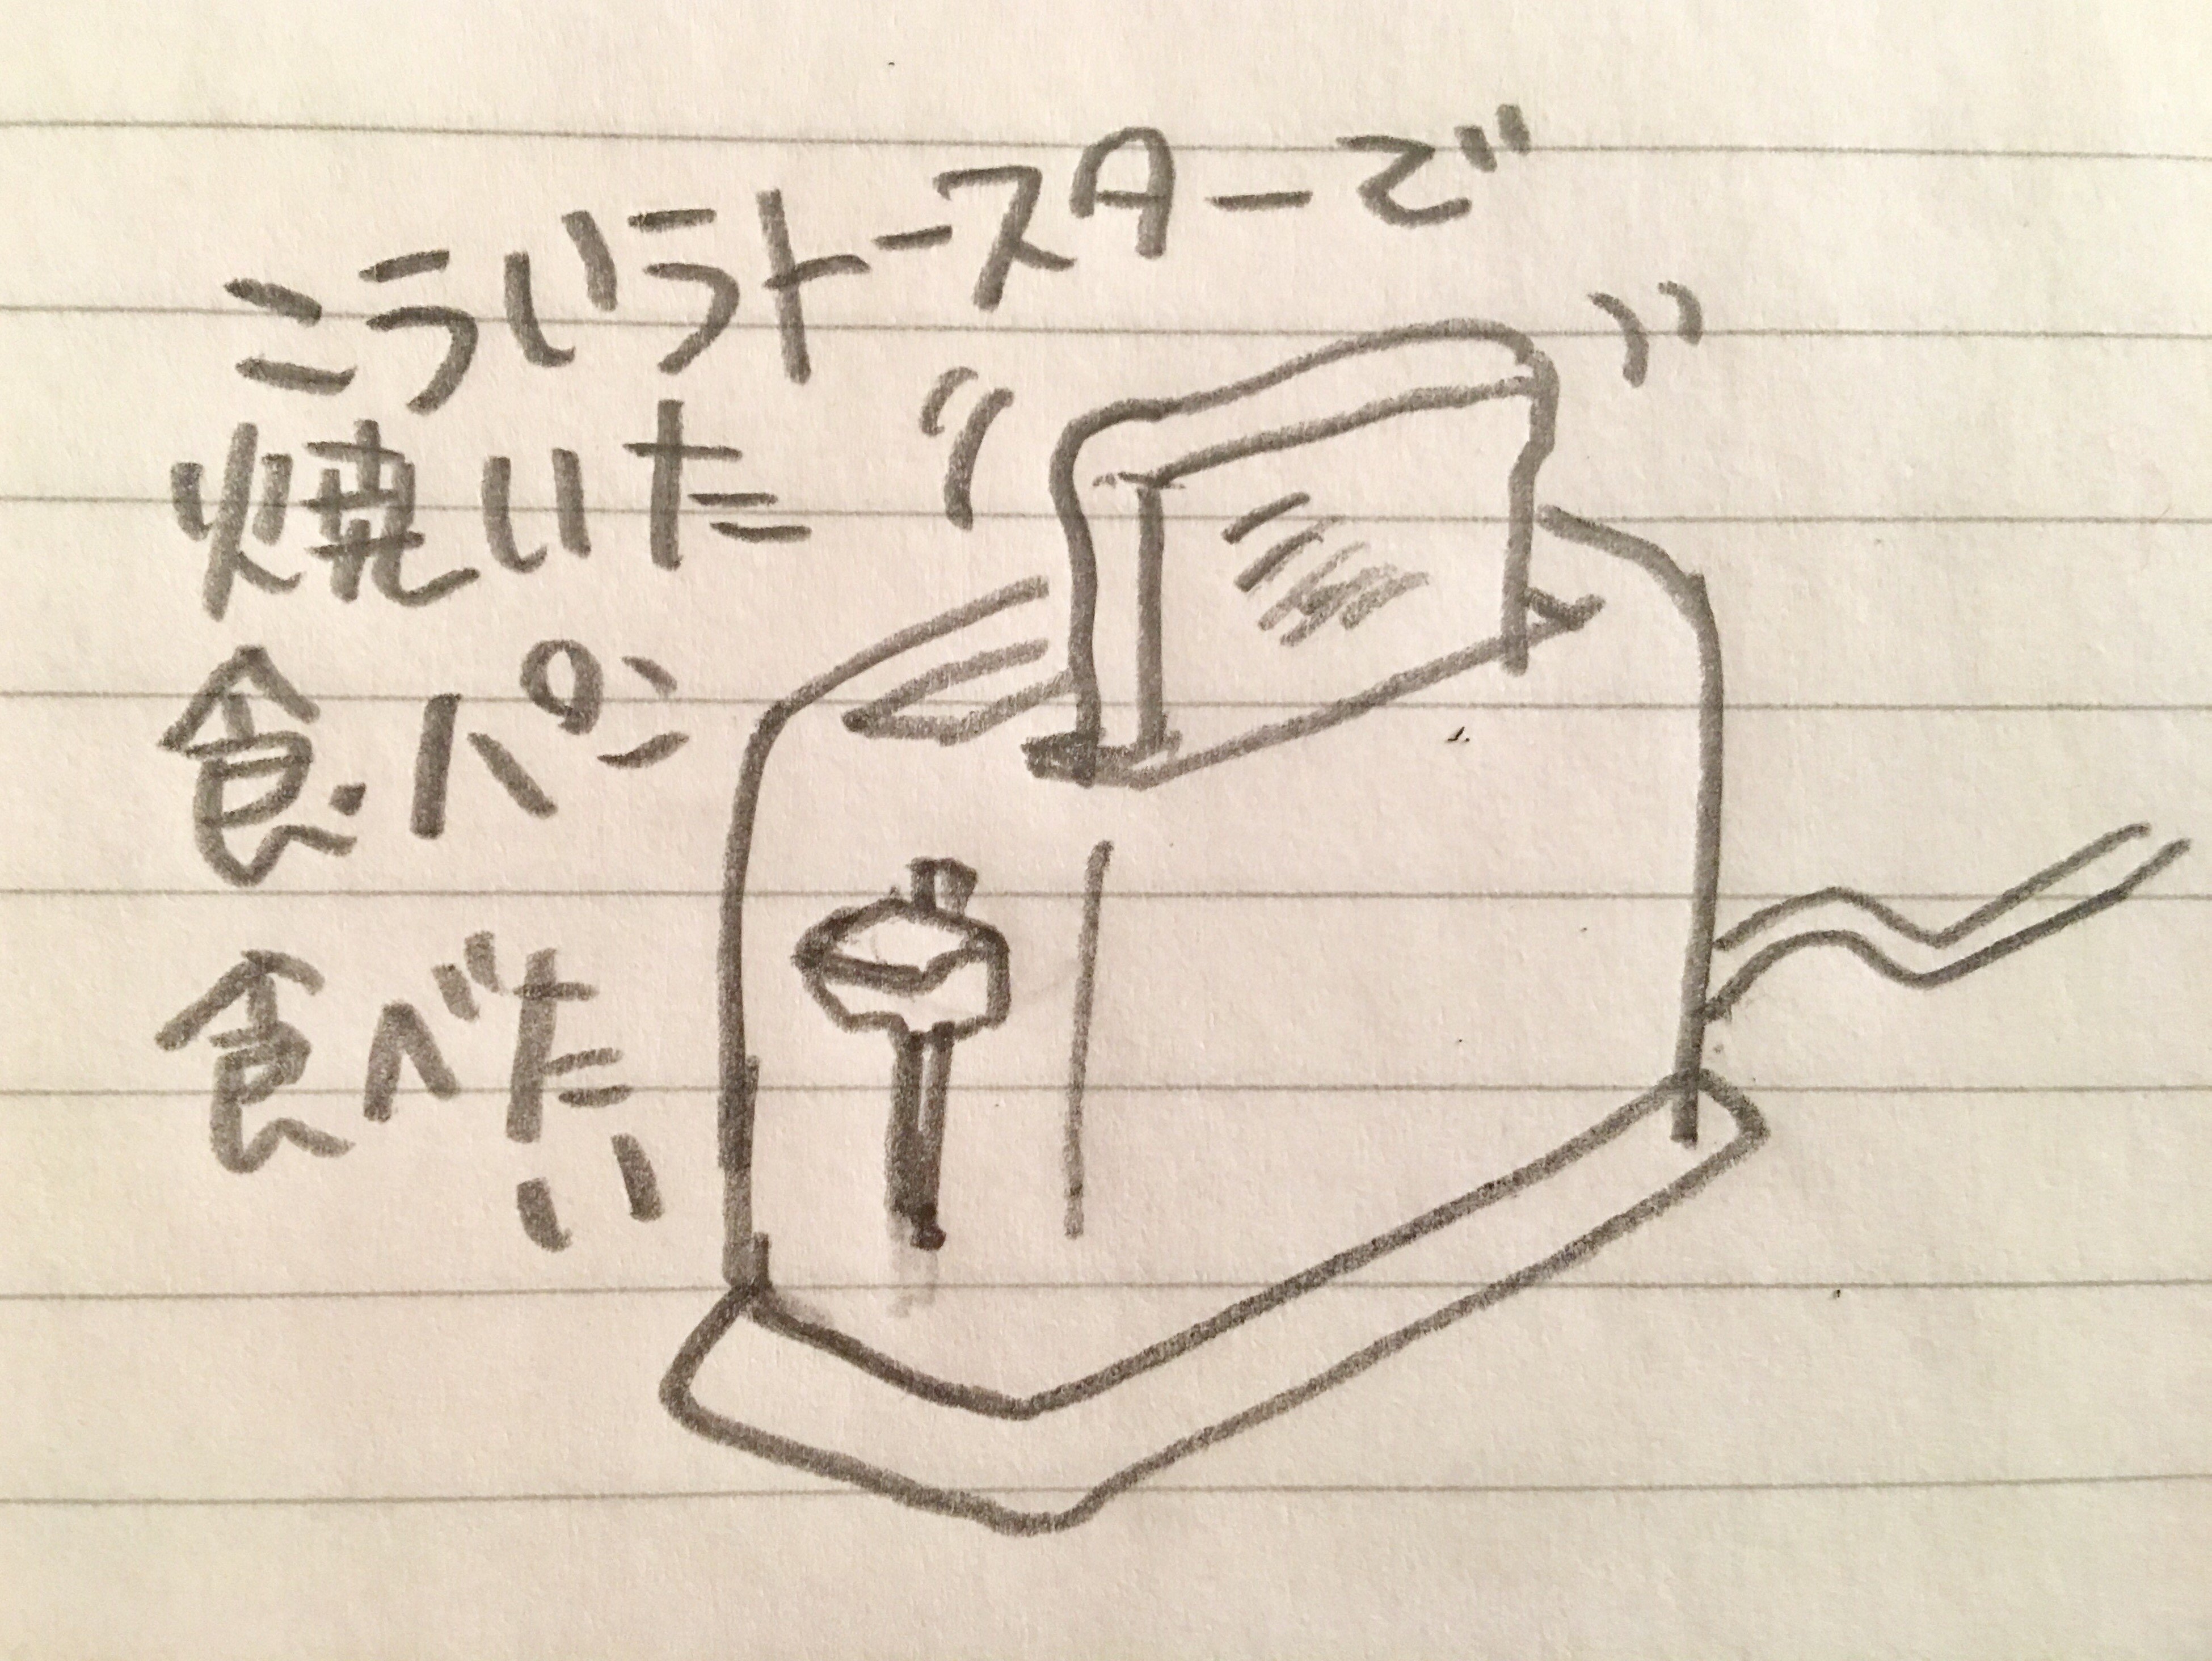 こういうトースターで
焼いた
食パン
食べた
い